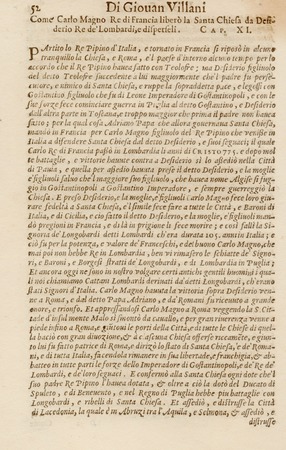 52 Di Giovan Villani
Come Carlo Magno Re di Francia liberò la Santa Chiesa da Desi-
derio Re de' Lombardi, e dispersesi. Cap. XI.
Partito lo Re Pipino d'Italia, e tornato in Francia si riposò in alcuno
tranquillo la Chiesa, e Roma, e il paese d'intorno alcuno tempo per lo
accordo che il Re Pipino havea fatto con Teolofre; ma Desiderio figliuolo
del detto Teolofre succedente a lui maggiormente che'l padre fu perse-
cutore, e nimico di santa Chiesa, e ruppe la sopradetta pace, e legossi con
Gostantino figliuolo che fu di Leone Imperadore di Gostantinopoli, e con le
sue forze fece cominciare guerra in Puglia al detto Gostantino, e Desiderio
dall'altra parte in Toscana, e troppo maggiore che prima il padre non havea
fatto; per la qual cosa Adriano Papa che allora governava Santa Chiesa,
mandò in Francia per Carlo Magno figliuolo del Re Pipino che venisse in
Italia a difendere Santa Chiesa dal detto Desiderio, e suoi seguaci; il quale
Carlo Re di Francia passò in Lombardia li anni di Cristo 775. e dopo mol-
te battaglie, e vittorie haunte contra a Desiderio sì lo assediò nella Città
di Pavia, e quella per assedio haunta prese il detto Desiderio, e la moglie,
e figliuoli salvo che l maggiore suo figliuolo, che havea nome Algise si fug-
gio in Gostantinopoli a Gostantino Imperadore, e sempre guerreggiò la
Chiesa. E preso Desiderio, e la moglie, e figliuoli, Carlo Magno fece loro giu-
rare fedeltà a Santa Chiesa, e l simile fece fare a tutte le Città, e Baroni di
Italia, e di Cicilia, e ciò fatto il detto Desiderio, e la moglie, e figliuoli man-
dò prigioni in Francia, e di là in prigione li fece morire; e così fallì la Si-
gnoria de' Longobardi detti Lombardi ch'era durata 205. anni in Italia; e
ciò fu per la potenza, e valore de' Franceschi, e del buono Carlo Magno, che
mai poi non hebbe Re in Lombardia, ben vi rimasero le schiatte de' Signo-
ri, e Baroni, e Borgesi stratti de' Longobardi, e di Lombardia in Puglia;
Et ancora oggi ne sono in nostro volgare certi antichi gentili huomini i qua-
li noi chiamiamo Cattani Lombardi derivati da detti Longobardi, ch'erano
stati Signori d'Italia. Carlo Magno haunta la vittoria sopra Desiderio ven-
ne a Roma, e dal detto Papa Adriano, e da' Romani fu ricevuto a grande
onore, e trionfo. Et appressandosi Carlo Magno a Roma veggendo la S. Cit-
tade d'insul monte Malo si smontò da cavallo, e per gran riverenza venne a
piede infino a Roma, e giunto li porti della Città, e di tutte le Chiese di quel-
la baciò con gran divozione, & a ciascuna Chiesa offerse riccamente, e giun-
to lui fu fatto patrice di Roma, e dirizzò lo stato di Santa Chiesa, e de' Roma-
ni, e di tutta Italia, facendola rimanere in sua libertade, e franchigia, & ab-
battéo in tutte parti le forze dello Imperadore di Gostantinopoli, e de' Re de'
Lombardi, e de' loro seguaci. E confermò alla Santa Chiesa ogni dote che'l
suo padre Re Pipino l'havea dotata, e oltre a ciò la dotò del Ducato di
Spuleto, e di Benevento, e nel Regno di Puglia hebbe più battaglie con
Longobardi, e ribelli di Santa Chiesa. Et assediò, e distrusse la Città
di Lacedonia, la quale è in Abruzi tra l'Aquila, e Selmona, & assediò, e
distrusse